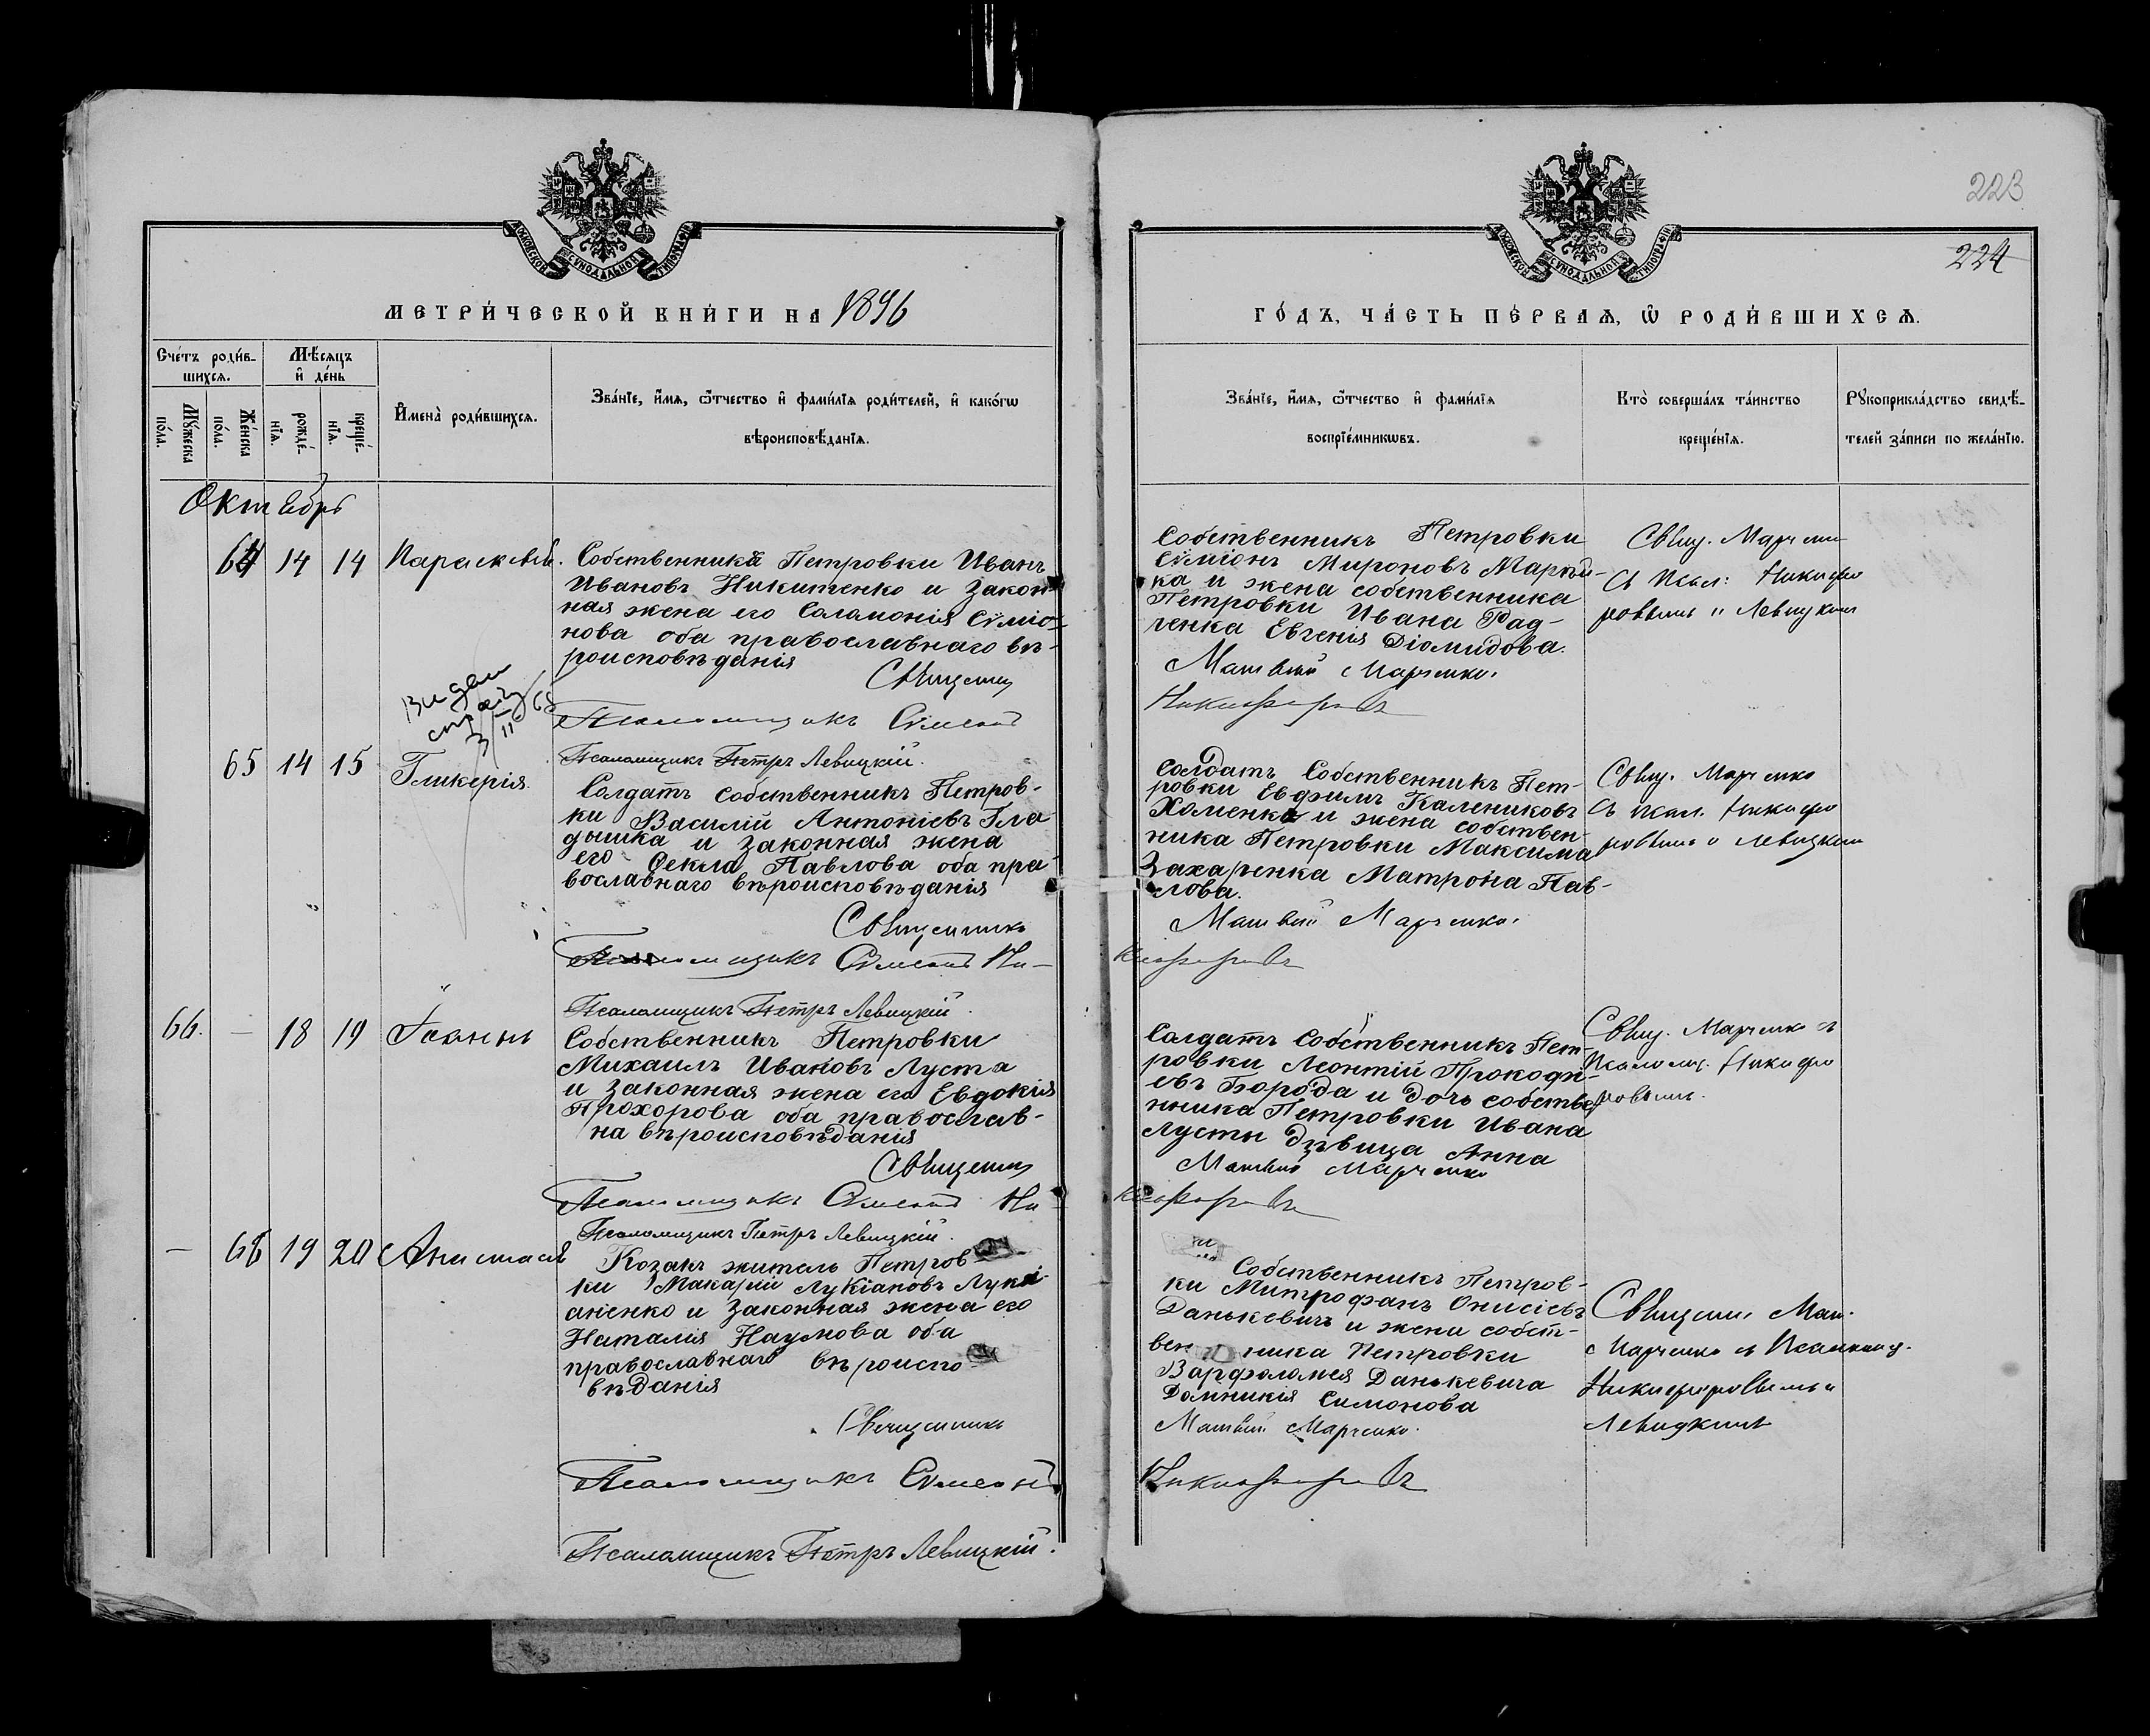 223
224
МОСКОВСКОЙ СѴНОДАЛЬНОЙ ТИПОГРАФІИ
МОСКОВСКОЙ СѴНОДАЛЬНОЙ ТИПОГРАФІИ
МЕТРИ́ЧЕСКОЙ КНИ́ГИ НА 1896
ГО́ДЪ, ЧА́СТЬ ПЕ́РВАЯ, Ѡ РОДИ́ВШИХСЯ.
Сче́тъ роди́в-
шихся.
Мѣ́сяцъ
и҆ де́нь
Мꙋ́жеска
по́ла.
Же́нска
по́ла.
рожде́-
нїя.
креще́-
нїя.
И҆мена̀ роди́вшихся.
Зва́нїе, и҆́мя, ѻ҆́тчество и҆ фами́лїя роди́телей, и҆ како́гѡ
вѣроисповѣ́данїя.
Зва́нїе, и҆́мя, ѻ҆́тчество и҆ фами́лїя
воспрїе́мникѡвъ.
Кто̀ соверша́лъ та́инство
креще́нїя.
Рꙋкоприкла́дство свидѣ́-
телей за́писи по жела́нїю.
Октябрь
64 14 14 Параскева.
Собственникъ Петровки Иванъ
Ивановъ Никитенко и закон-
ная жена его Саламонія Сѵміо-
нова оба православнаго вѣ-
роисповѣданія
Священ
Псаломщикъ Сѵмеонъ
Псаломщикъ Петръ Левицкій.
Собственникъ Петровки
Сѵміонъ Мироновъ
ка и жена собственника
Петровки Ивана Рад-
ченка Евгенія Діомидова.
Матвѣй Марченко.
Никифоровъ
Свящ. Марченко
съ Псал: Никифо
ровымъ и Левицким
Видан
3/II 68
65 14 15 Гликерія.
Солдатъ собственникъ Петров-
ки Василій Антоніевъ Гла
дышка и законная жена
его Ѳекла Павлова оба пра-
вославнаго вѣроисповѣданія
Священникъ
Псаломщикъ Сѵмеонъ Ни-
Псаломщикъ Петръ Левицкій.
Солдатъ Собственникъ Пет-
ровки Евфимъ Калениковъ
Хоменко и жена собствен-
ника Петровки Максима
Захарченка Матрона Пав-
лова.
Матвѣй Марченко.
кифоровъ
Свящ. Марченко
съ псал. Никифо
ровымъ и Левицким
66. — 18 19 Іоаннъ
Собственникъ Петровки
Михаилъ Ивановъ Луста
и законная жена его Евдокія
Прохорова оба православ-
на вѣроисповѣданія
Священ
Псаломщикъ Сѵмеонъ Ни-
Псаломщикъ Петръ Левицкій.
Солдатъ Собственникъ Пет-
ровки Леонтій Прокофі-
евъ Борода и дочь собстве
нника Петровки Ивана
Лусты дѣвица Анна
Матвѣй Марченко
кифоровъ
Свящ. Марченко съ
Псаломщ. Никифо
ровымъ.
— 66 19 20 Анастасія
Козакъ житель Петров-
ки Макарій Лукіановъ Луки-
аненко и законная жена его
Наталія Наумова оба
православнаго вѣроиспо
вѣданія
Священникъ
Псаломщикъ Сѵмеонъ
Псаломщикъ Петръ Левицкій.
Собственникъ Петров-
ки Митрофанъ Онисіевъ
Данькевичъ и жена собст-
вен ника Петровки
Варфоломея Данькевича
Домникія Симонова
Матвѣй Марченко.
Никифоровъ
Священ. Мат.
Марченко съ Псаломщ.
Никифоровымъ и
Левицкимъ